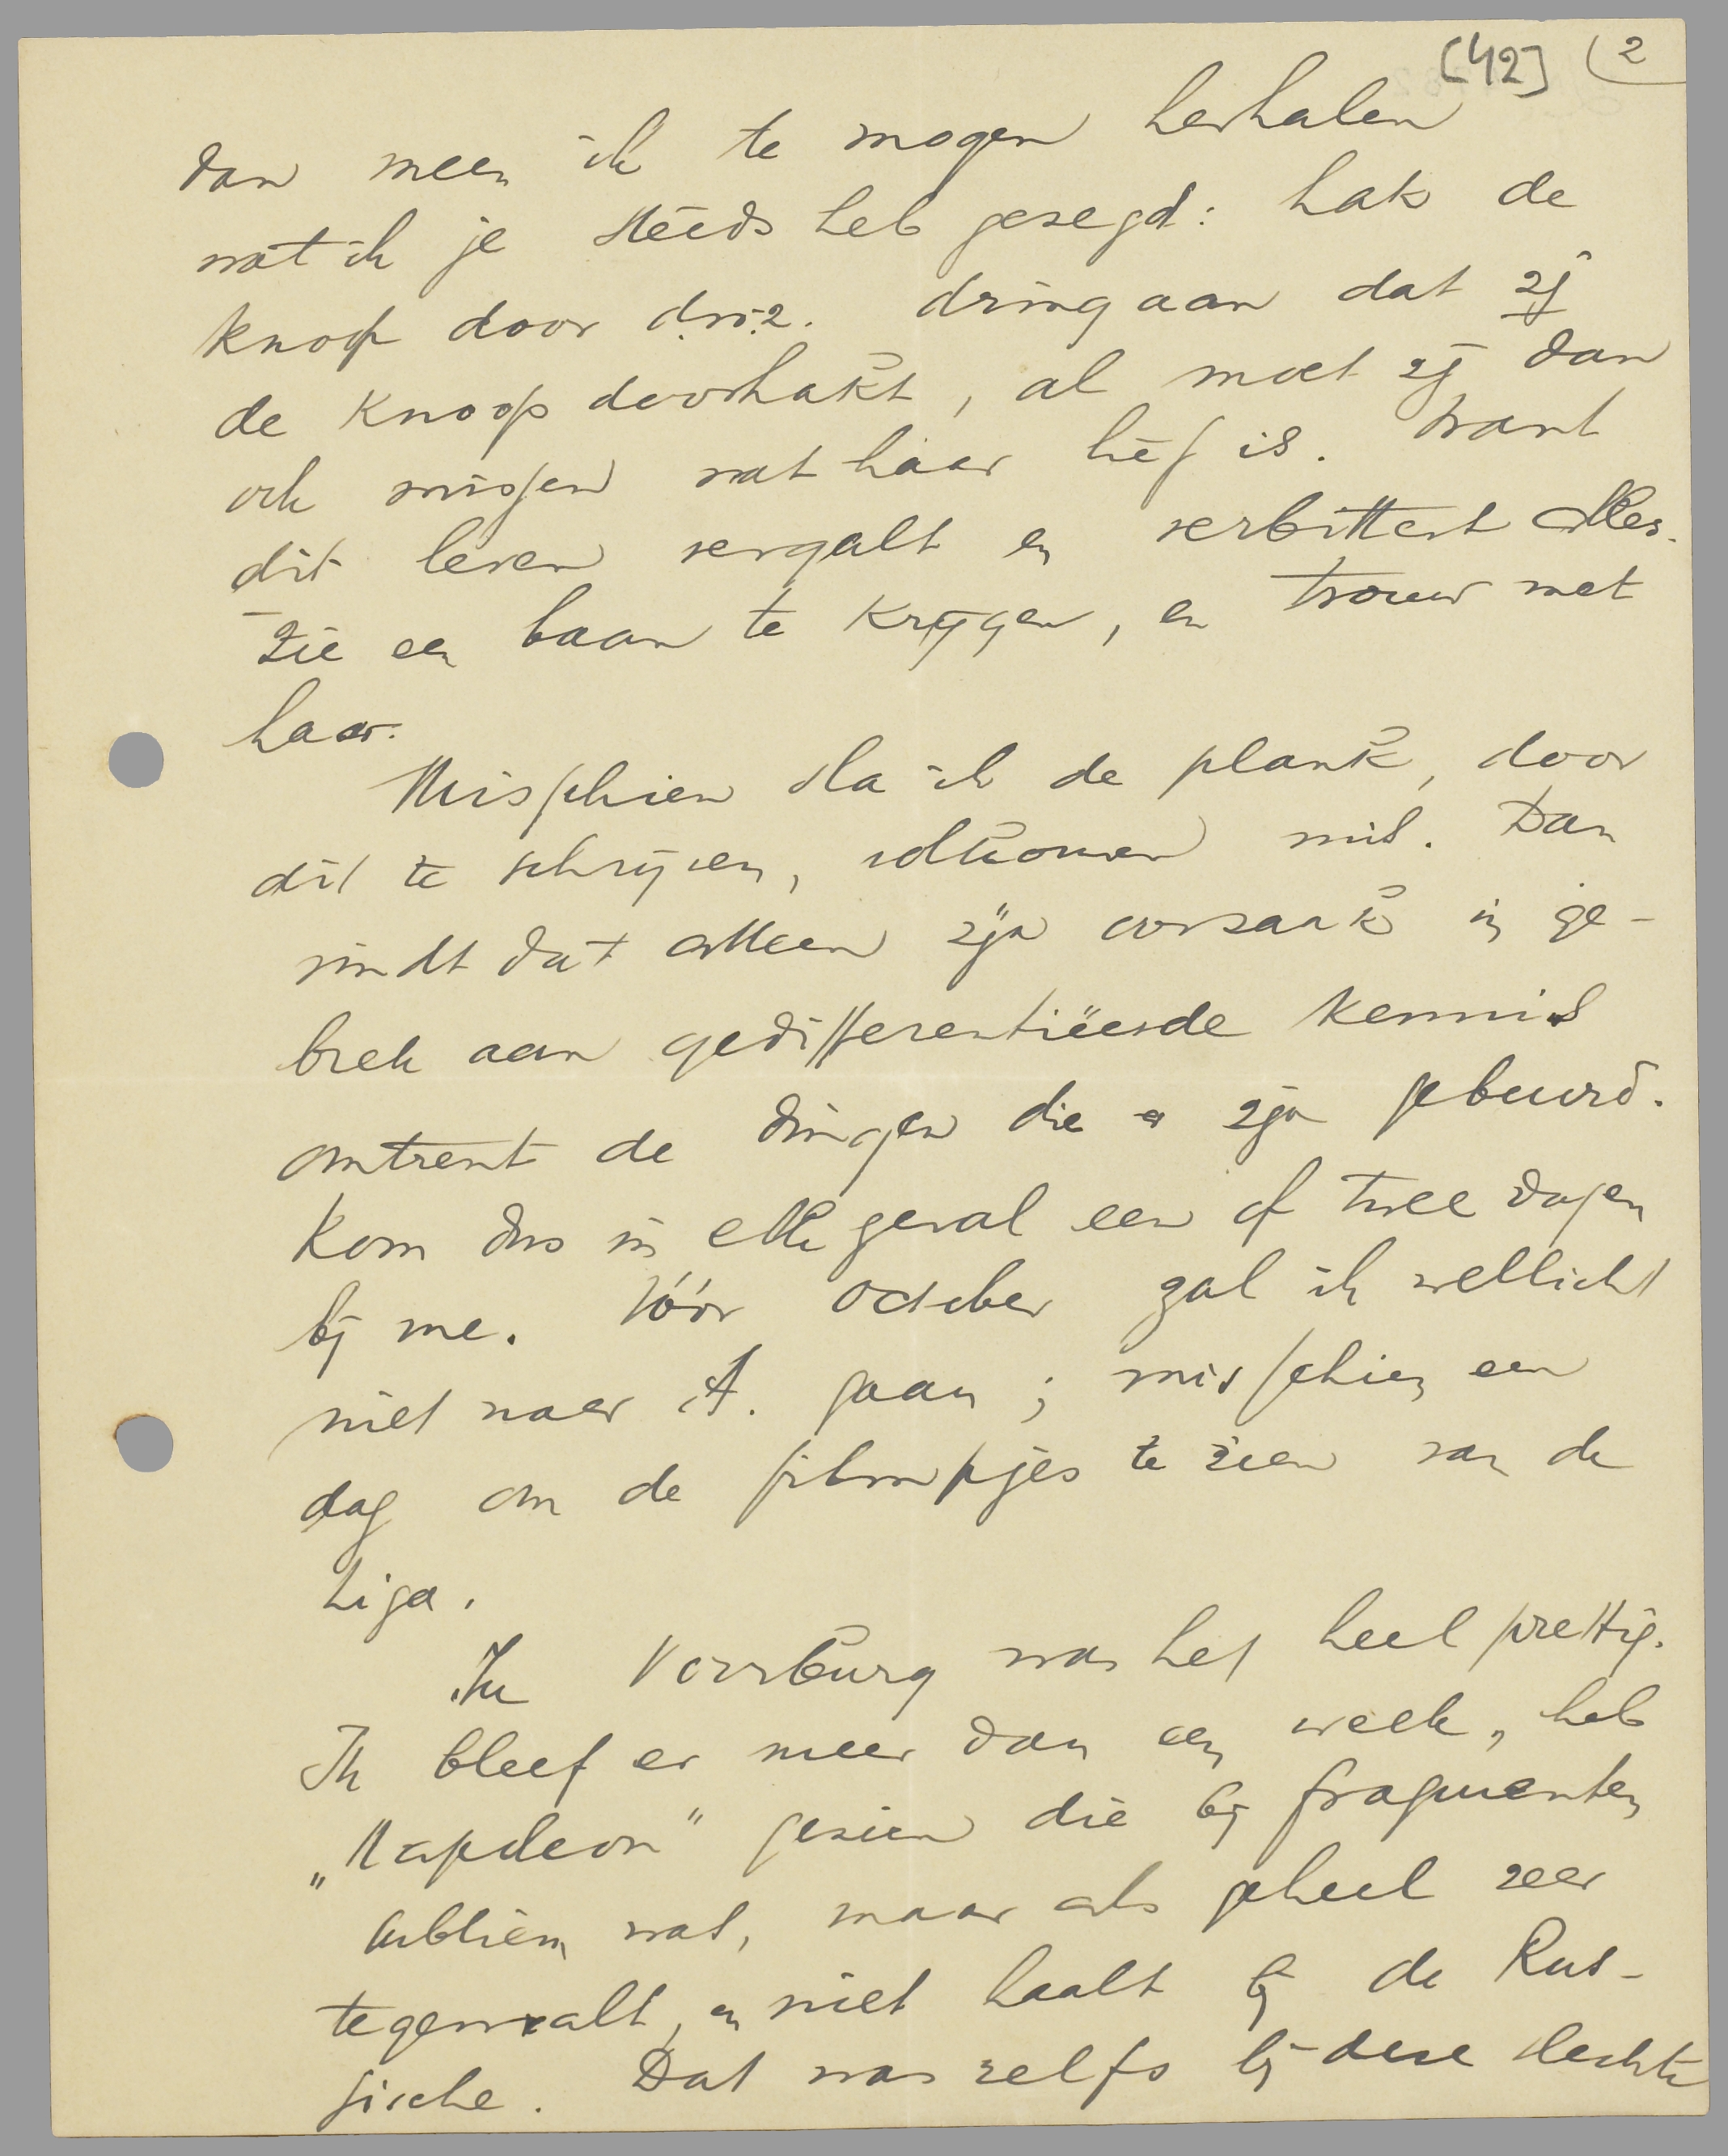 [42] (2
dan meen ik te mogen herhalen
wat ik je steeds heb gezegd: hak de
knoop door d.w.z. dring aan dat zij
de knoop doorhakt, al moet zij dan
ook missen wat haar lief is. Want
dit leven vergalt en verbittert alles.
Zie een baan te krijgen, en trouw met
haar.
Misschien sla ik de plank, door
dit te schrijven, volkomen mis. Dan
vindt dat alleen zijn oorzaak in ge-
brek aan gedifferentiëerde kennis
omtrent de dingen die er zijn gebeurd.
Kom dus in elk geval een of twee dagen
bij me. Vóór October zal ik wellicht
niet naar A. gaan; misschien een
dag om de filmpjes te zien van de
Liga.
In Voorburg was het heel prettig.
Ik bleef er meer dan een week, heb
„Napoleon" gezien die bij fragmenten
subliem was, maar als geheel zeer
tegenvalt, en niet haalt bij de Rus-
sische. Dat was zelfs bij deze slechte